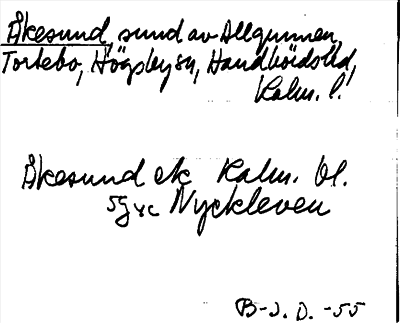 Åkesund, sund av Allgunnen,
Tortebo, Högsby sn, Handbörds hd,
Kalm. l.
Åkesund ek Kalm. bl.
Nyckleven
B-J. D. -55